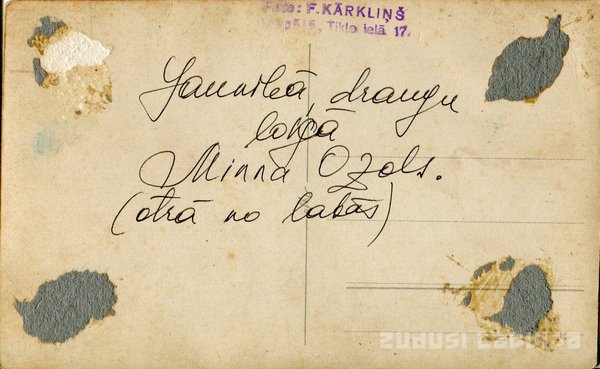 Foto: F. KĀRKLIŅŠ
ielā 17.
Jaunībā, draugu
lokā
Minna Ozols.
(otrā no labās)
ZUDUSI LATVIJA